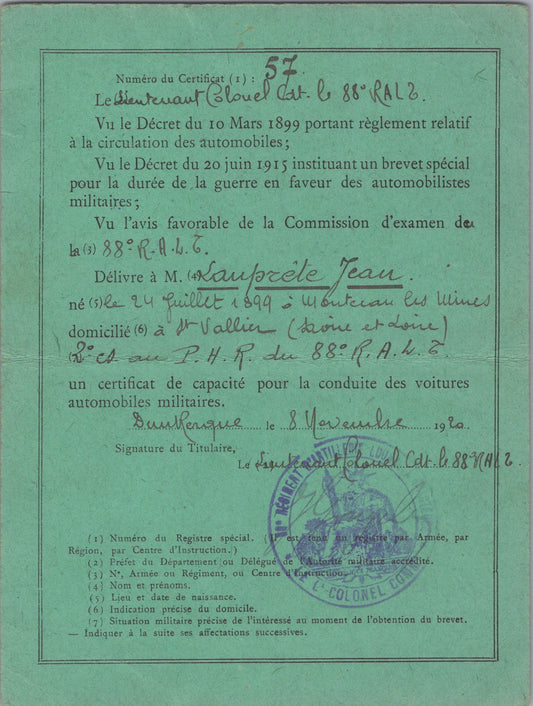 Numéro du Certificat (1) : 57
Le Lieutenant Colonel Cdt. le 88e RALT.
Vu le Décret du 10 Mars 1899 portant règlement relatif
à la circulation des automobiles;
Vu le Décret du 20 juin 1915 instituant un brevet spécial
pour la durée de la guerre en faveur des automobilistes
militaires;
Vu l'avis favorable de la Commission d'examen de
la (3) 88e R.A.L.T.
Délivre à M. (4) Lauprête Jean.
né (5) le 24 Juillet 1899 à Montceau les Mines
domicilié (6) à St Vallier (Saône et Loire)
2e cs au P.H.R. du 88e R.A.L.T.
un certificat de capacité pour la conduite des voitures
automobiles militaires.
Dunkerque le 8 Novembre 1920
Signature du Titulaire,
Le Lieutenant Colonel Cdt. le 88e RALT.
RÉGIMENT D'ARTILLERIE LOURDE
Lt-COLONEL
(1) Numéro du Registre spécial. (Il est tenu un registre par Armée, par
Région, par Centre d'Instruction.)
(2) Préfet du Département ou Délégué de l'Autorité militaire accrédité.
(3) N°, Armée ou Régiment, ou Centre d'Instruction.
(4) Nom et prénoms.
(5) Lieu et date de naissance.
(6) Indication précise du domicile.
(7) Situation militaire précise de l'intéressé au moment de l'obtention du brevet.
— Indiquer à la suite ses affectations successives.